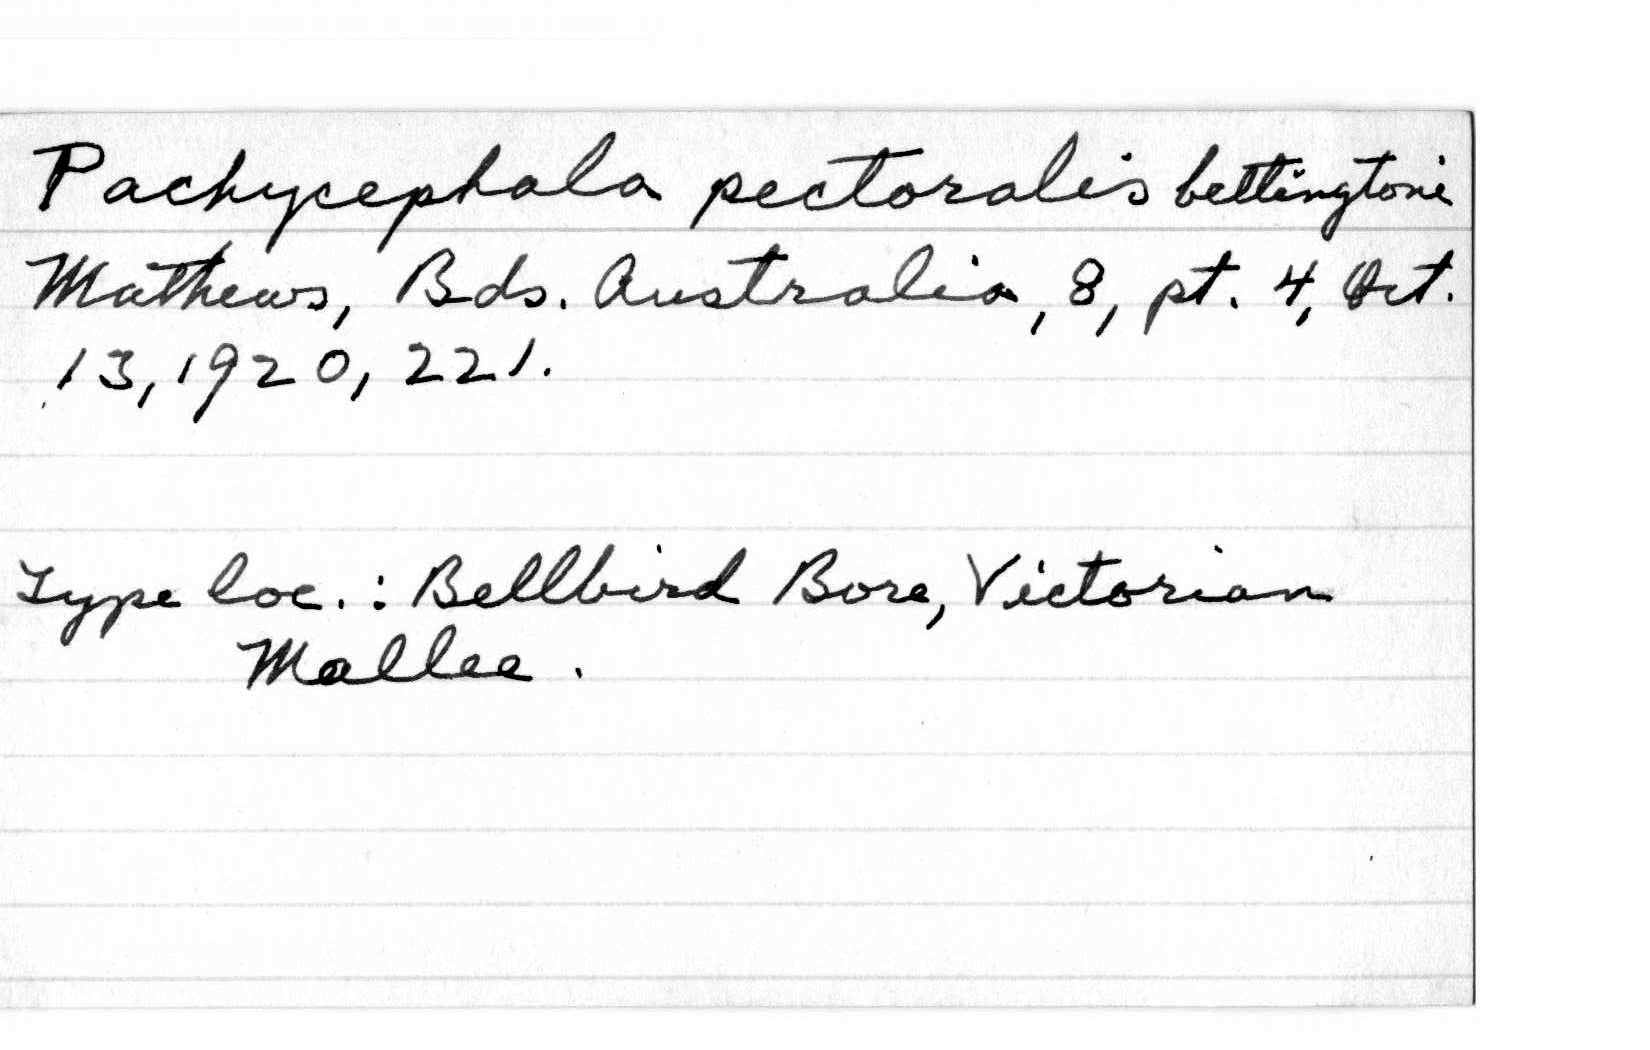 Pachycephala pectoralis bettingtoni
Mathews, Bds. Australia, 8, pt. 4, Oct.
13, 1920, 221.
Type loc. : Bellbird Bore, Victorian
Mallee .